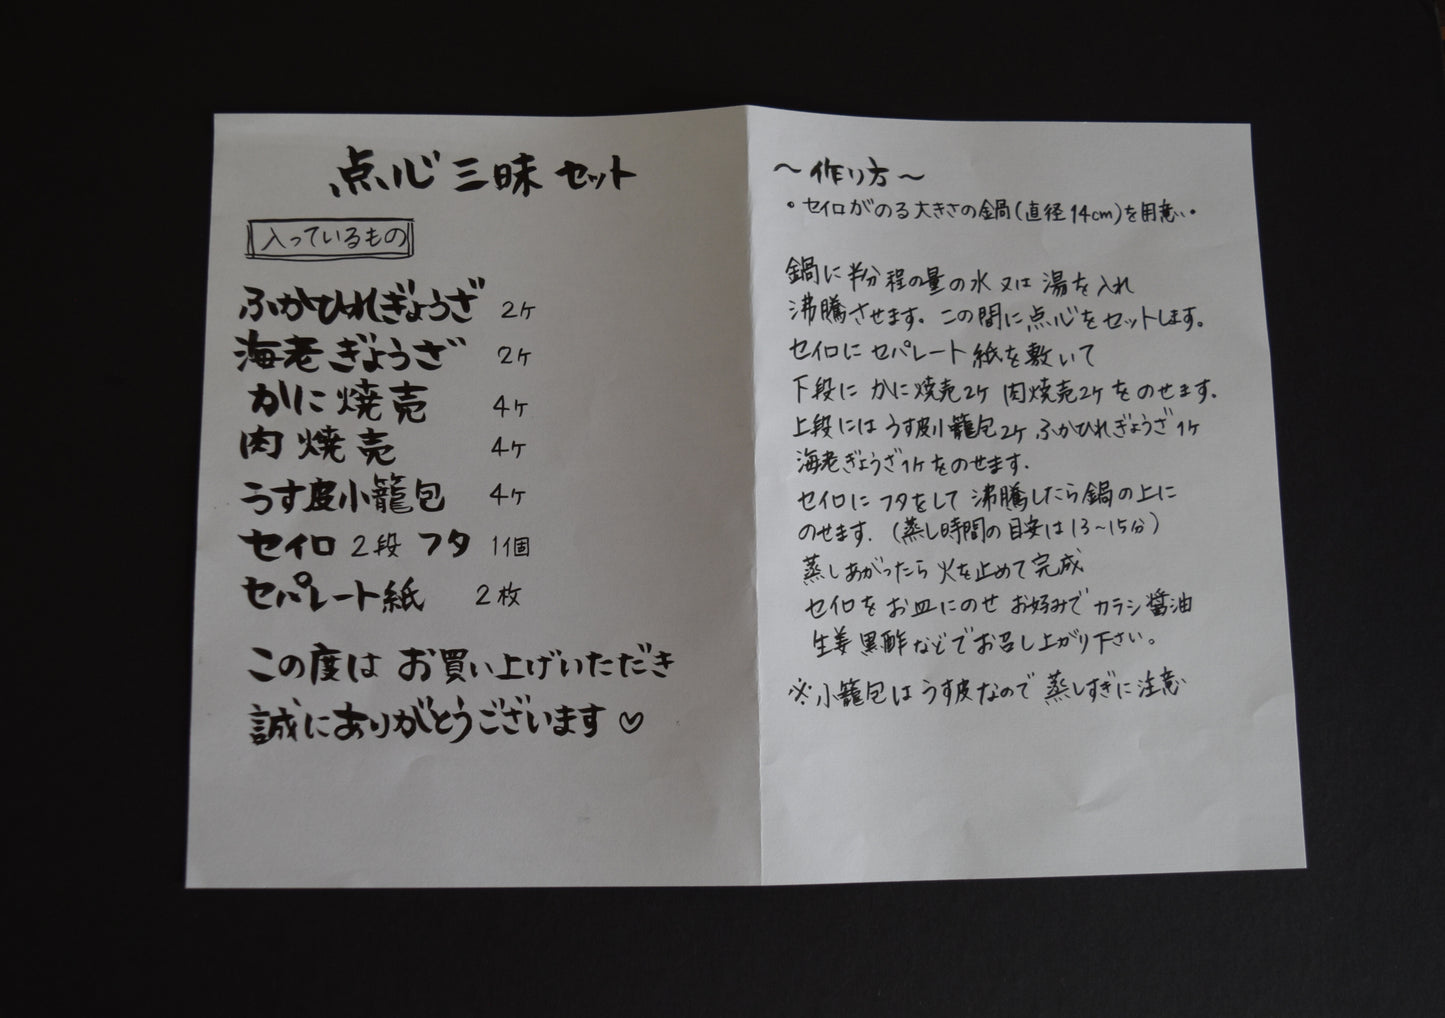 点心三昧セット
入っているもの
ふかひれぎょうざ 2ヶ
海老ぎょうざ 2ヶ
かに焼売 4ヶ
肉焼売 4ヶ
うす皮小籠包 4ヶ
セイロ2段フタ 1個
セパレート紙 2枚
この度は お買い上げいただき
誠にありがとうございます♡
〜作り方〜
・セイロがのる大きさの鍋(直径14cm)を用意・
鍋に半分程の量の水又は湯を入れ
沸騰させます。この間に点心をセットします。
セイロにセパレート紙を敷いて
下段にかに焼売2ヶ 肉焼売2ヶをのせます。
上段にはうす皮小籠包2ヶ ふかひれぎょうざ1ヶ
海老ぎょうざ1ヶをのせます。
セイロにフタをして沸騰したら鍋の上に
のせます。(蒸し時間の目安は13〜15分)
蒸しあがったら火を止めて完成
セイロをお皿にのせ お好みでカラシ醤油
生姜黒酢などでお召し上がり下さい。
※小籠包はうす皮なので蒸しすぎに注意